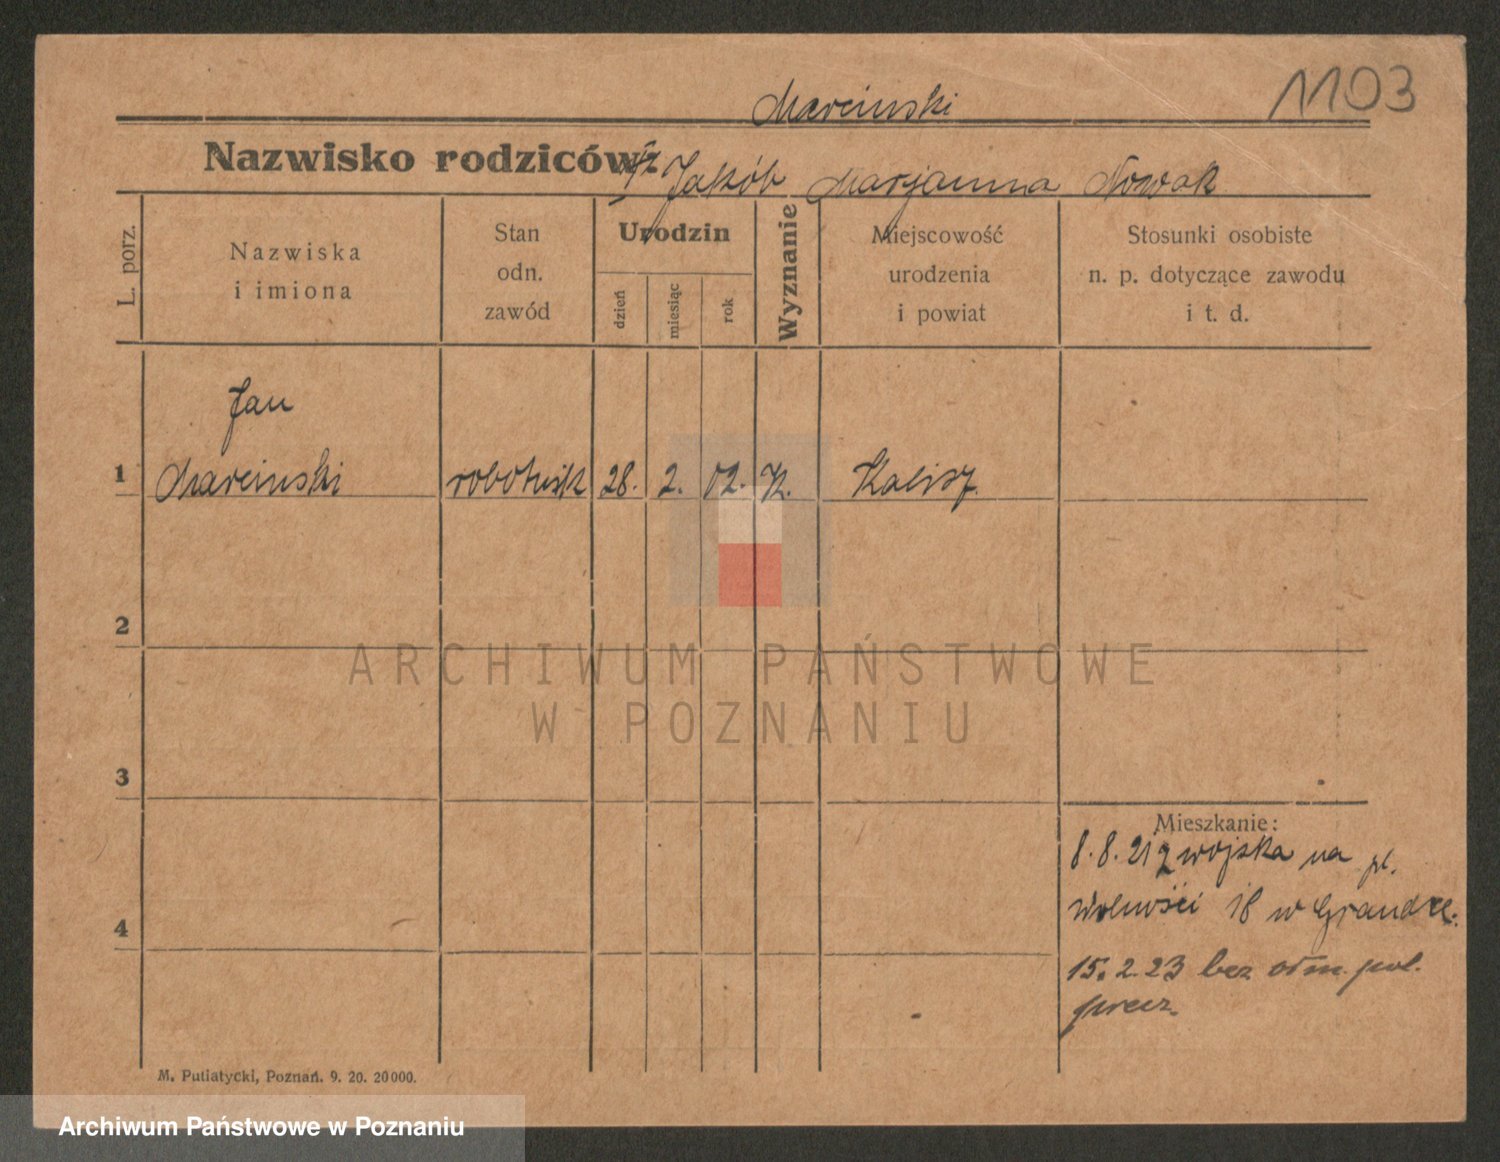 1103
Marcinski
Nazwisko rodziców: Jakób Marjanna Nowak
L. porz.
Nazwiska
i imiona
Stan
odn.
zawód
Urodzin
dzień
miesiąc
rok
Wyznanie
Miejscowość
urodzenia
i powiat
Stosunki osobiste
n. p. dotyczące zawodu
i t. d.
Jan
1 Marcinski robotnik 28. 2. 02. K. Kalisz.
2
ARCHIWUM PAŃSTWOWE
W POZNANIU
3
Mieszkanie:
8.8.21 z wojska na pl.
Wolności 18 w
4
15.2.23 bez odm. pol.
M. Putiatycki, Poznań. 9. 20. 20000.
Archiwum Państwowe w Poznaniu